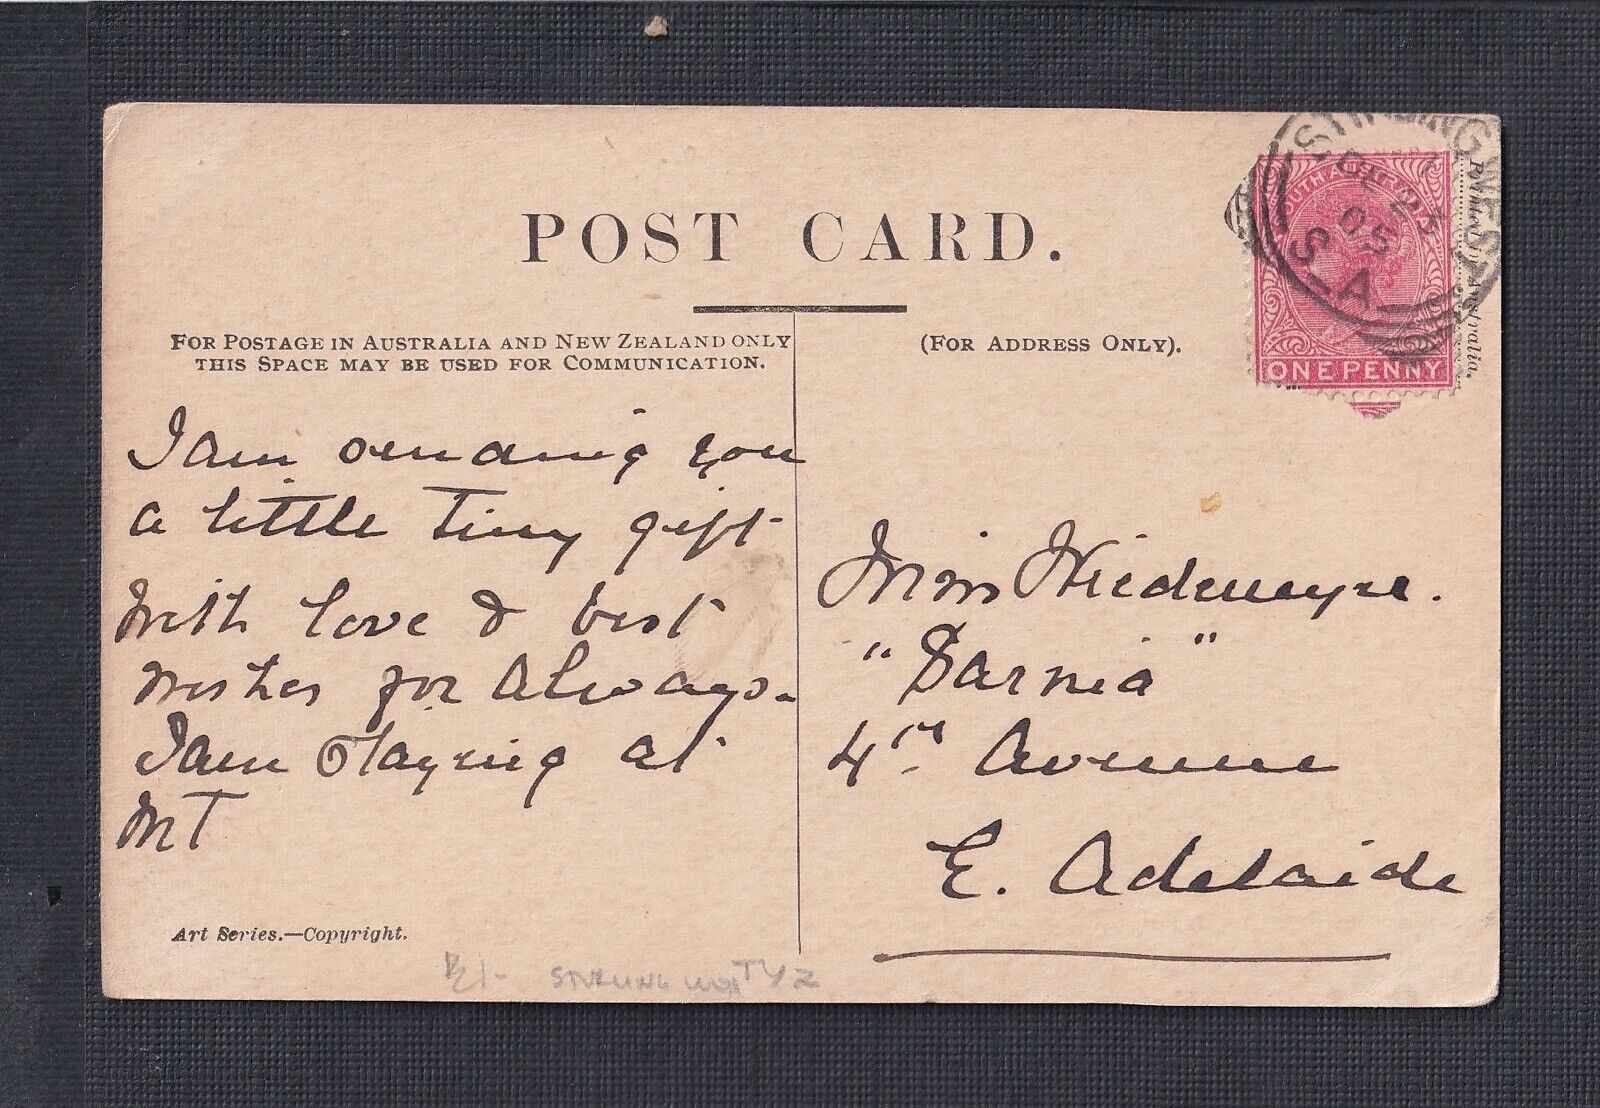 POST CARD.
FOR POSTAGE IN AUSTRALIA AND NEW ZEALAND ONLY
THIS SPACE MAY BE USED FOR COMMUNICATION.
(FOR ADDRESS ONLY).
STIRLING WEST
DE 23
05
S.A
SOUTH AUSTRALIA
ONE PENNY
Printed in Australia.
I am sending you
a little tiny gift
With love & best
wishes for always.
I am staying at
Mt
Miss Wiedemeyre.
"Sarnia"
4th Avenue
E. Adelaide
Art Series.—Copyright.
STIRLING WEST TY 2